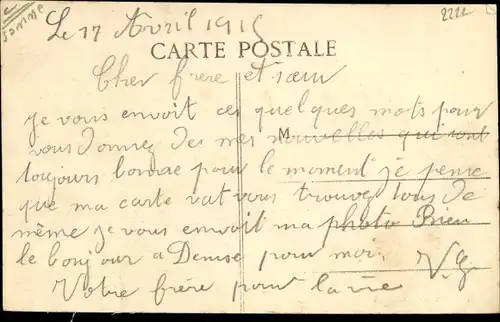 Somme
2222
Le 17 Avril 1915
CARTE POSTALE
Cher frere et sœur
Je vous envoit ces quelques mots pour
vous donnez de mes nouvelles qui sont
M
toujours bonne pour le moment je pense
que ma carte vat vous trouvez tous de
même je vous envoit ma photo Bien
le bonjour a Denise pour moi.
V.G.
Votre frère pour la vie